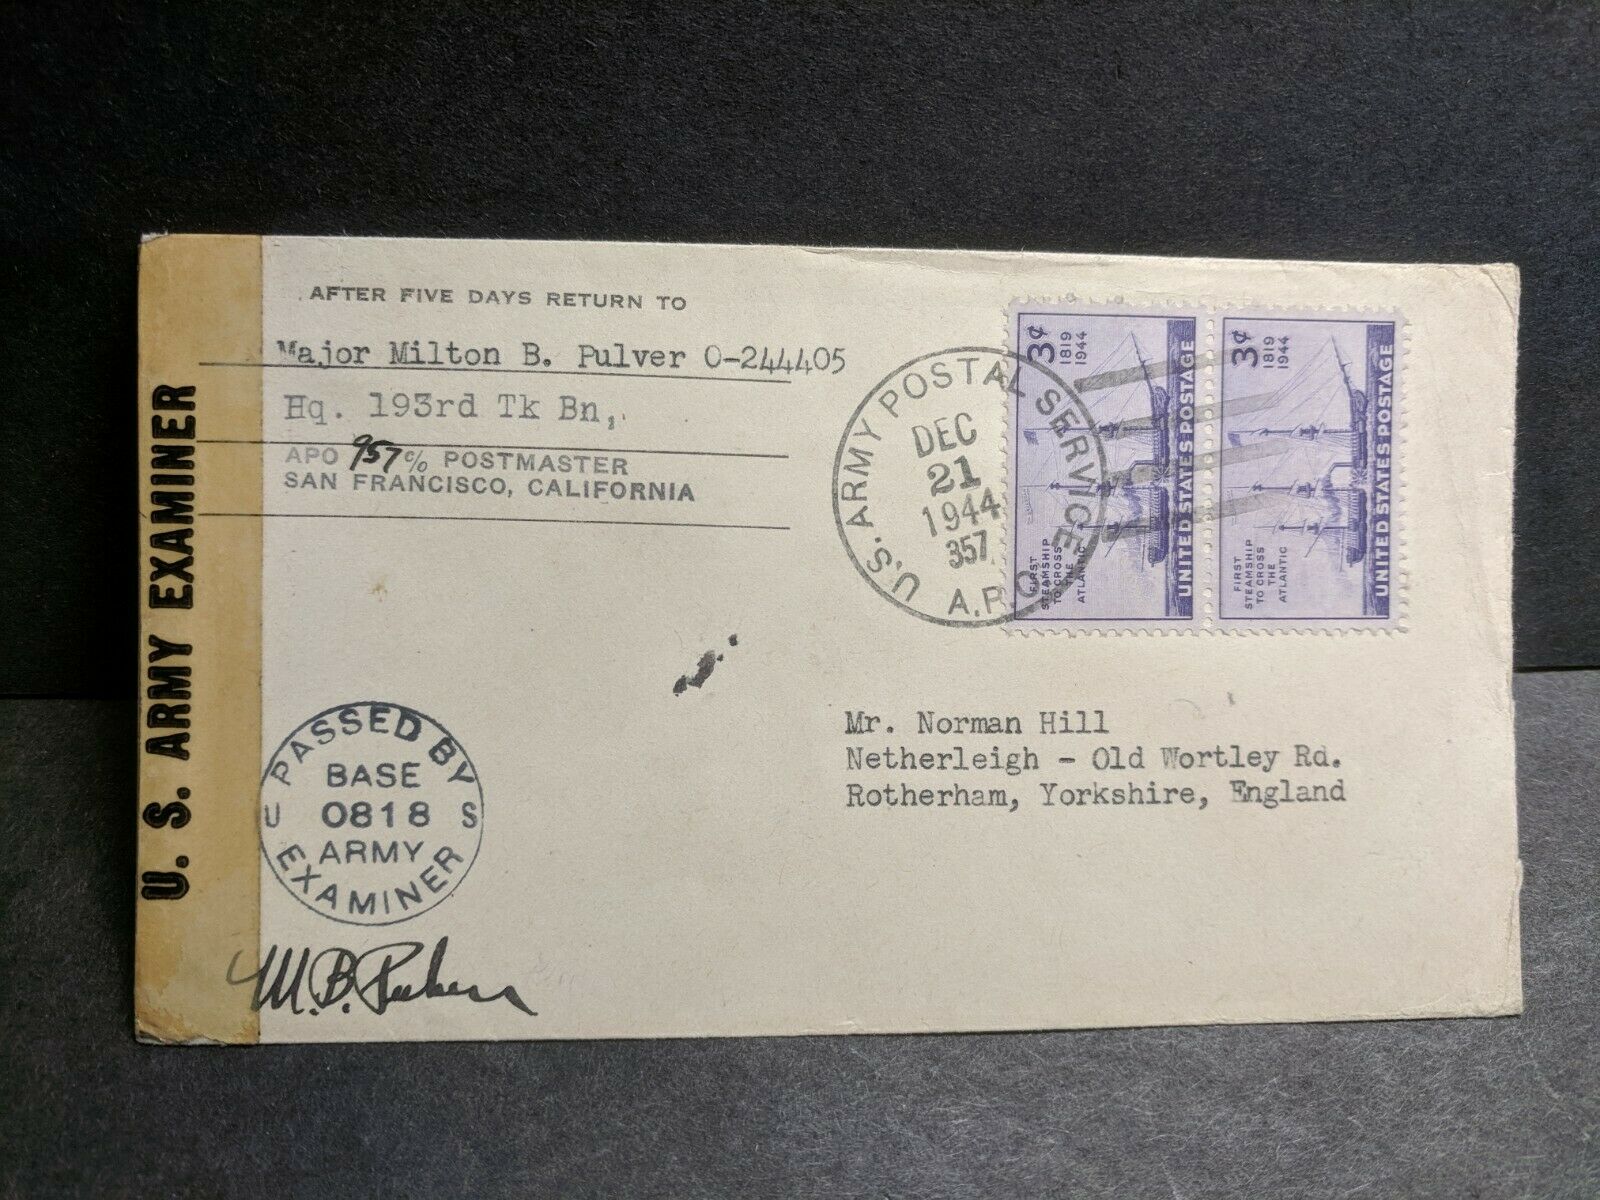 AFTER FIVE DAYS RETURN TO
Major Milton B. Pulver O-244405
Hq. 193rd Tk Bn,
APO 957 c/o POSTMASTER
SAN FRANCISCO, CALIFORNIA
U. S. ARMY EXAMINER
U.S. ARMY POSTAL SERVICE
DEC
21
1944
357
A.P.O.
3¢
1819
1944
FIRST
STEAMSHIP
TO CROSS
THE
ATLANTIC
UNITED STATES POSTAGE
3¢
1819
1944
FIRST
STEAMSHIP
TO CROSS
THE
ATLANTIC
UNITED STATES POSTAGE
Mr. Norman Hill
Netherleigh - Old Wortley Rd.
Rotherham, Yorkshire, England
PASSED BY
BASE
U 0818 S
ARMY
EXAMINER
M.B. Pulver